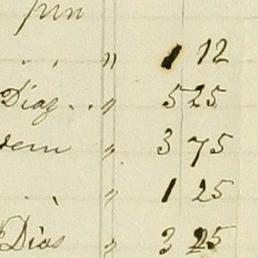 " 1 12
Diaz .. " 5 25
" 3 75
" 1 25
Dias " 3 25